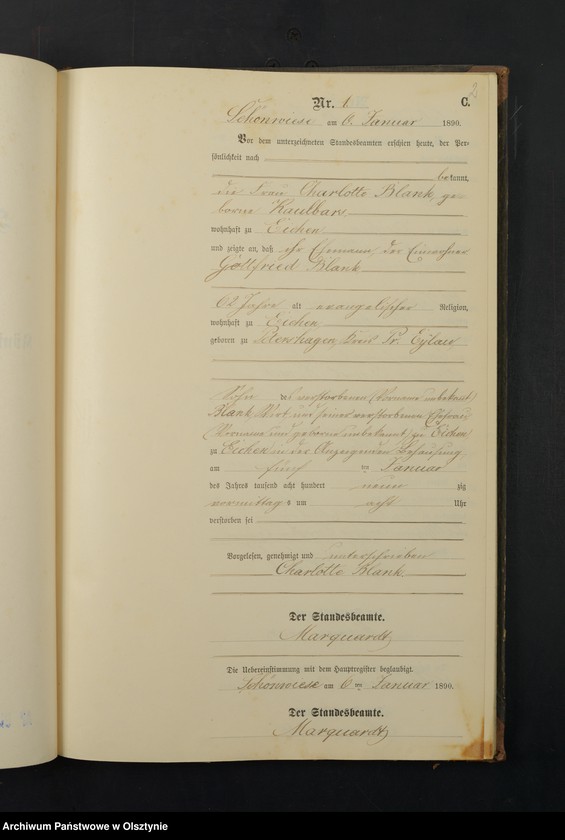 2
Nr. 1 C.
Schönwiese am 6. Januar 1890.
Vor dem unterzeichneten Standesbeamten erschien heute, der Per-
sönlichkeit nach
bekannt,
die Frau Charlotte Blank, ge-
borene Kaulbars
wohnhaft zu Eichen
und zeigte an, daß ihr Ehemann, der Einwohner
Gottfried Blank
62 Jahre alt evangelischer Religion,
wohnhaft zu Eichen
geboren zu Kreis Pr. Eylau
Sohn des verstorbenen (Vorname unbekannt)
Blank, Wirt und seiner verstorbenen Ehefrau
(Vorname und geborene unbekannt) zu Eichen
zu Eichen in der Anzeigenden Behausung
am fünf ten Januar
des Jahres tausend acht hundert neun zig
vormittags um acht Uhr
verstorben sei
Vorgelesen, genehmigt und unterschrieben
Charlotte Blank
Der Standesbeamte.
Marquardt
Die Uebereinstimmung mit dem Hauptregister beglaubigt.
Schönwiese am 6 ten Januar 1890.
Der Standesbeamte.
Marquardt
Archiwum Państwowe w Olsztynie